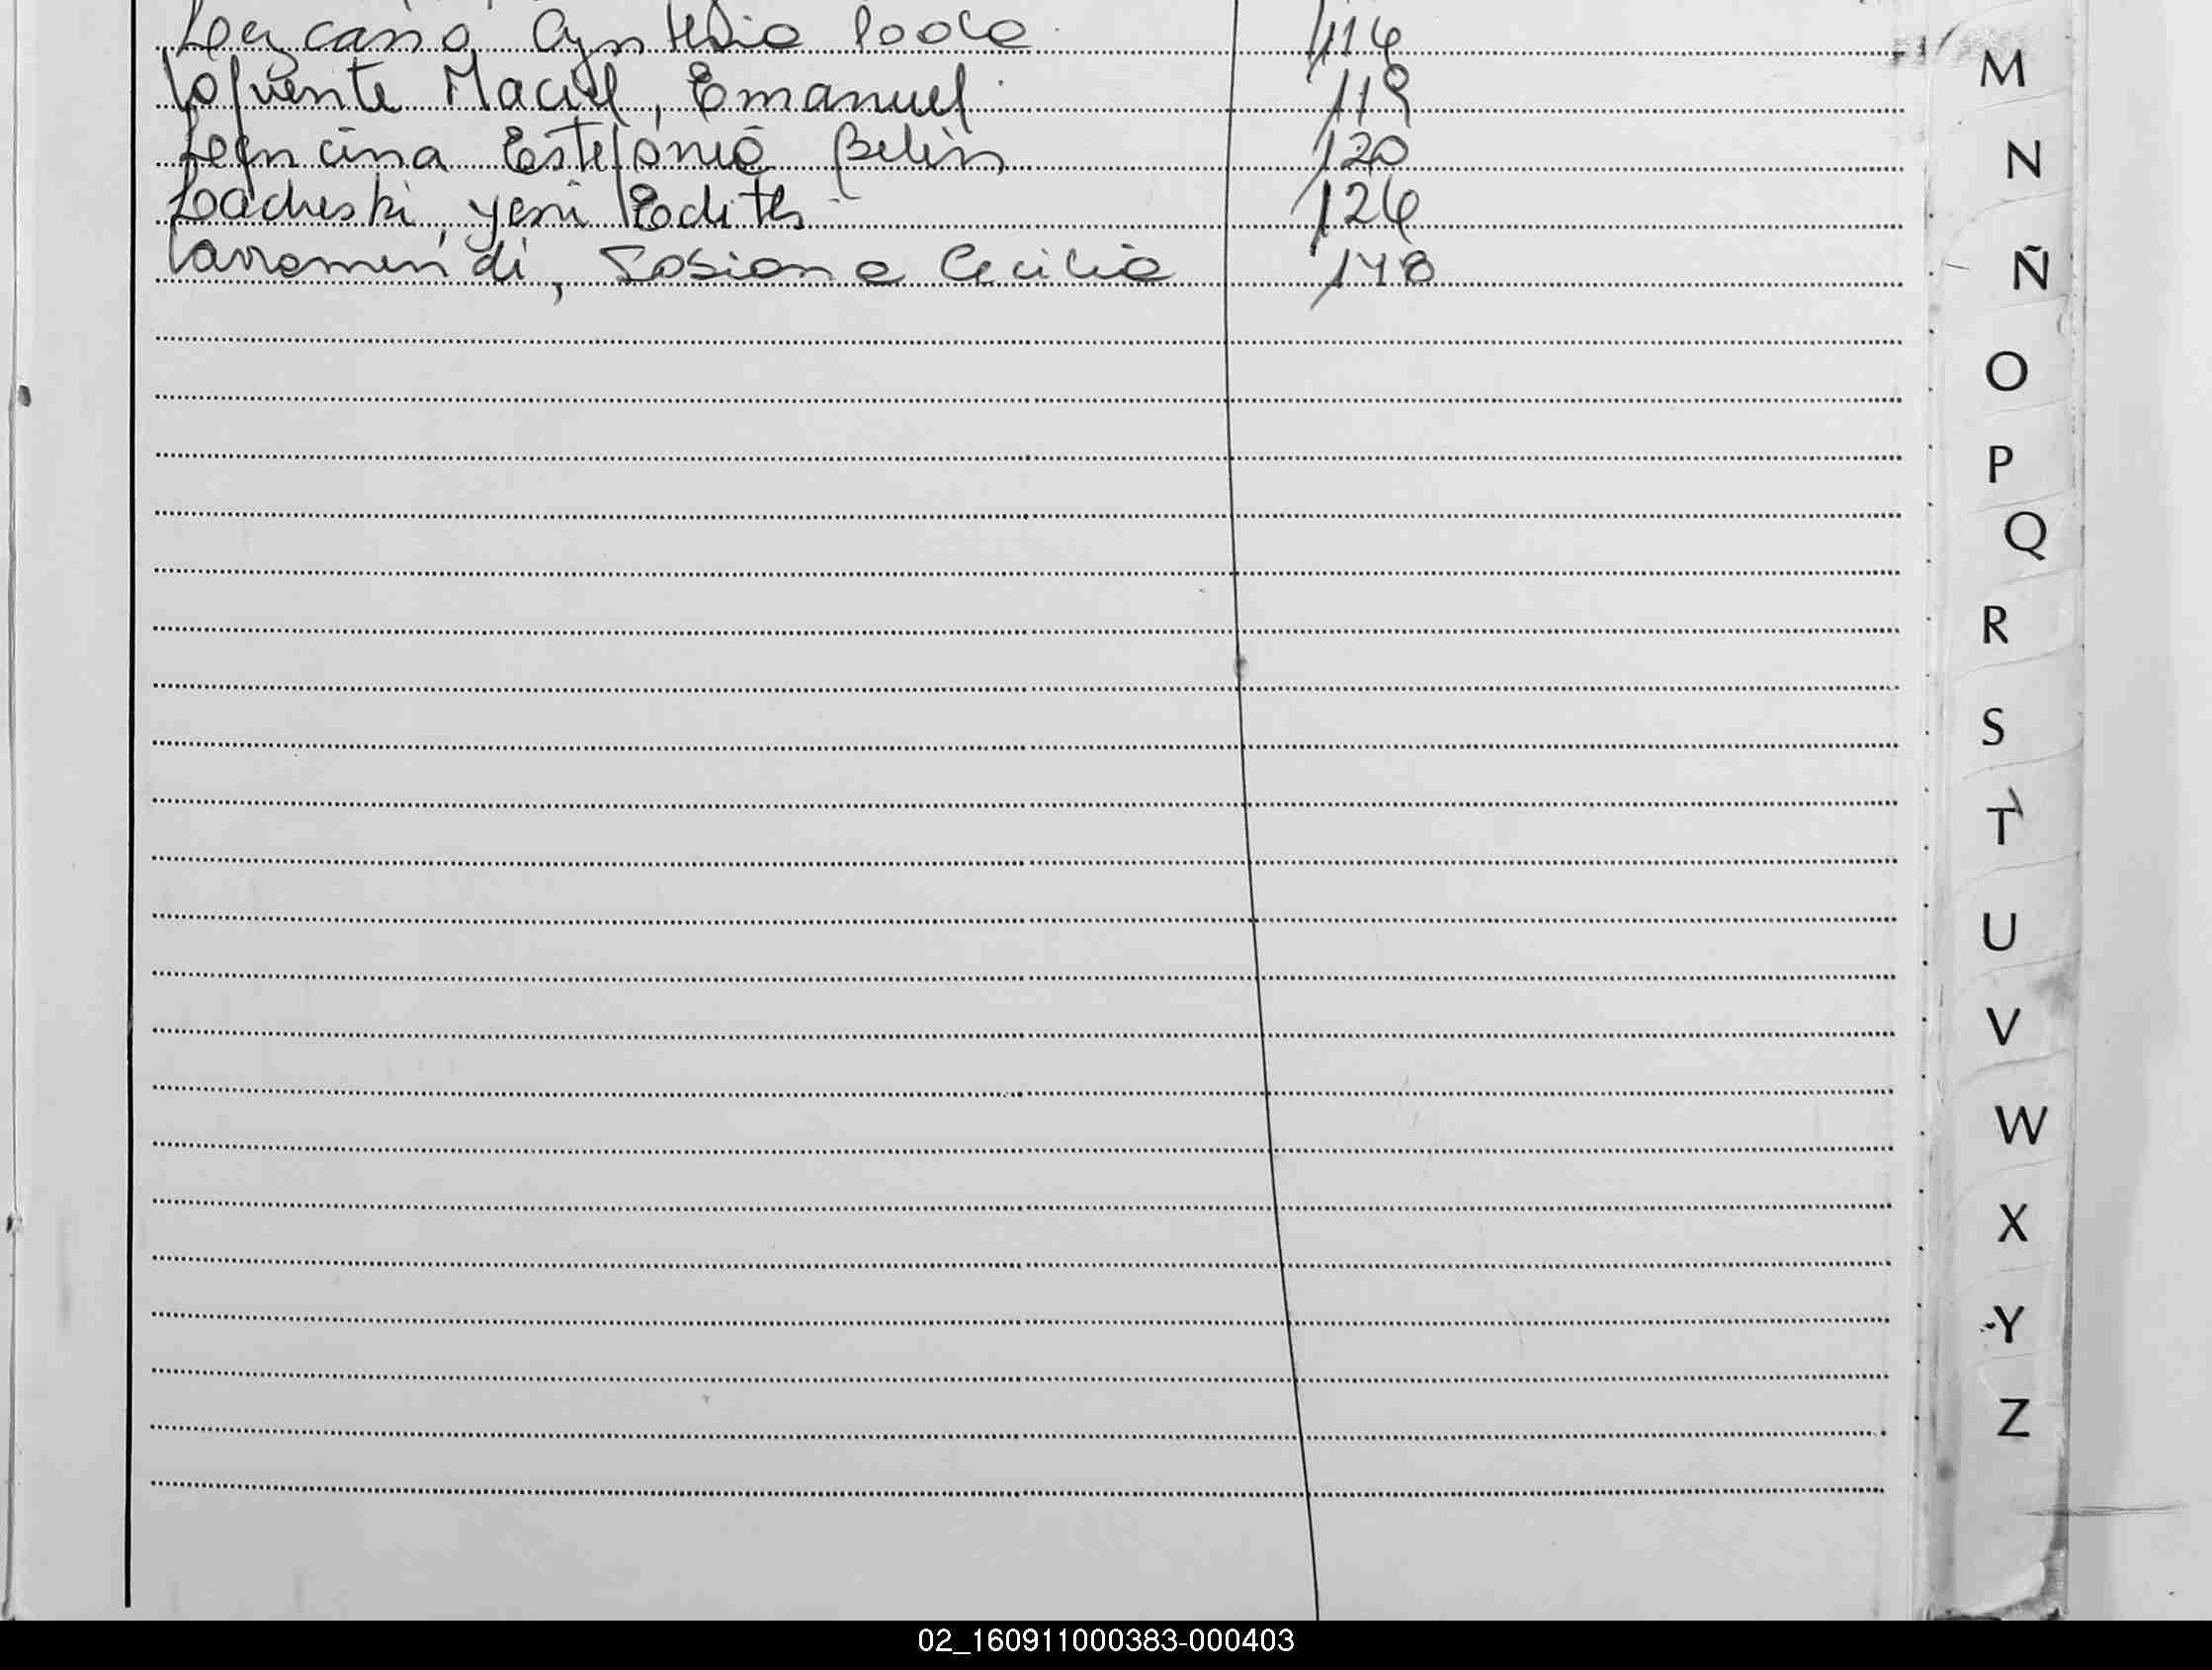 Lezcano, Cynthia Paola 116
Lafuente Maciel, Emanuel 119
Estefania Belén 120
Lacheski, Yeni Edith 126
Larramendi, Fabiana Cecilia 148
M
N
Ñ
O
P
Q
R
S
T
U
V
W
X
Y
Z
02_160911000383-000403